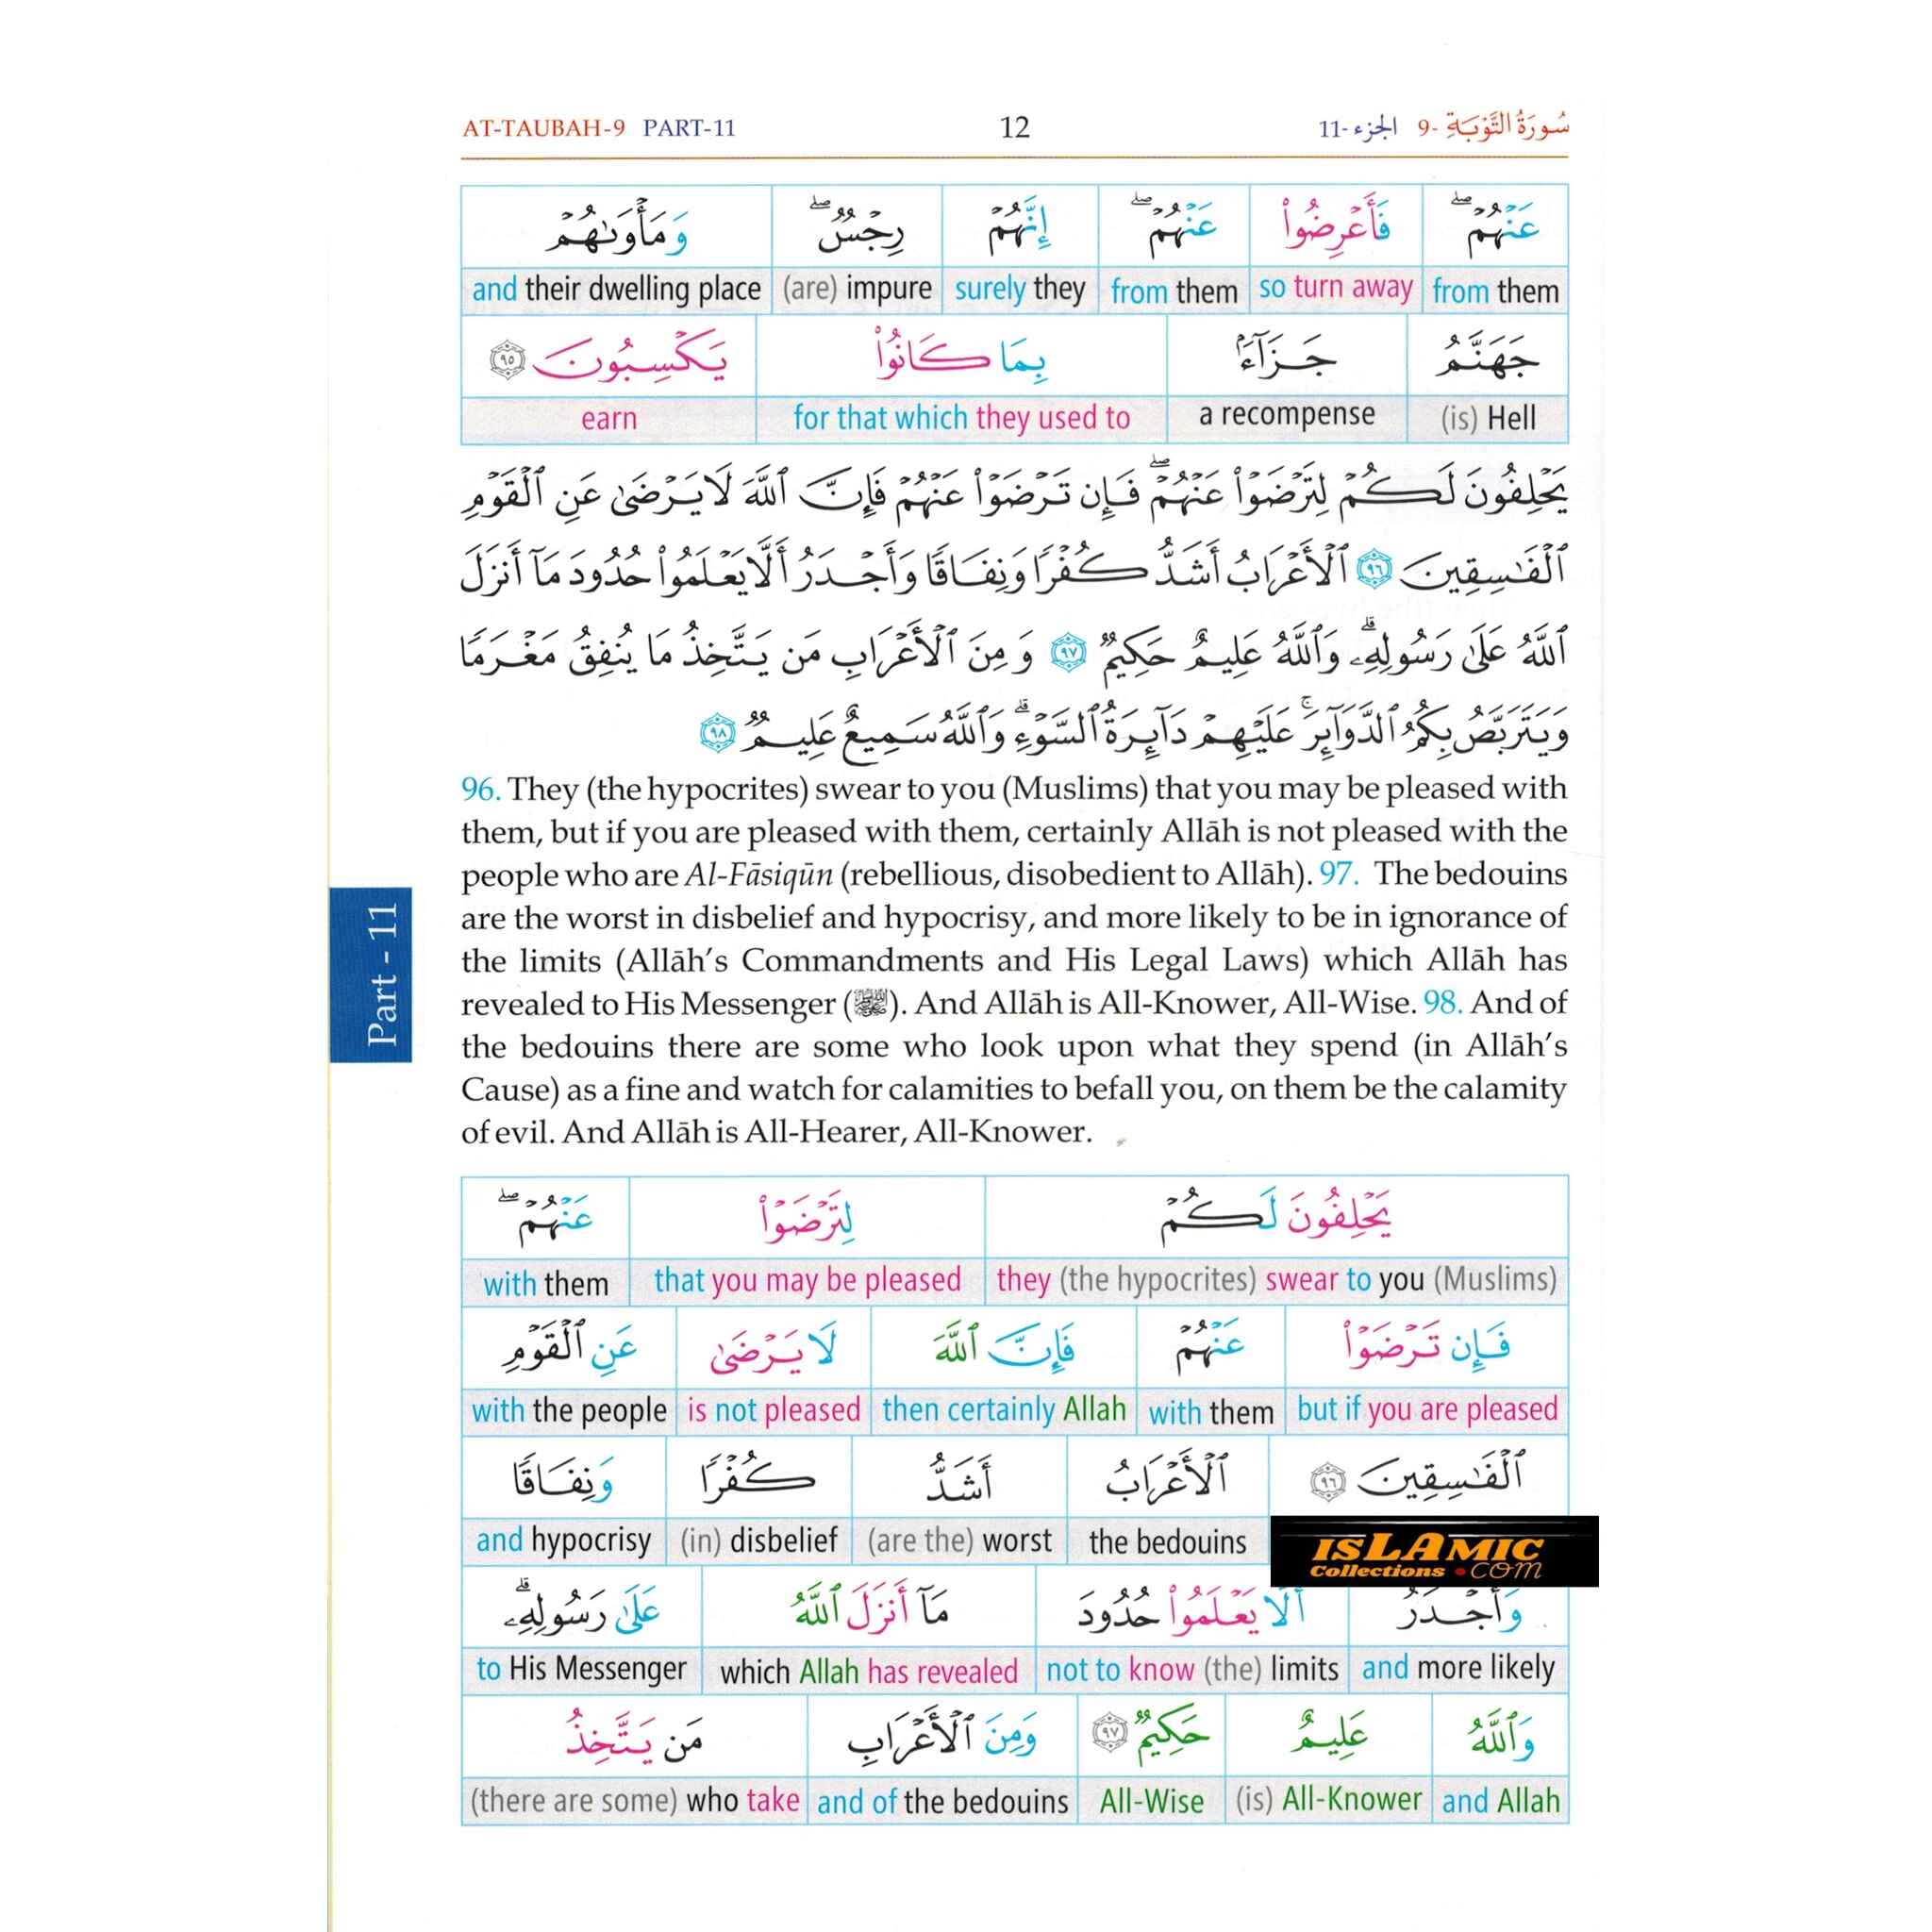 AT-TAUBAH-9 PART-11 12 الجزء -11 سُورَةُ التَّوْبَةِ -9
عَنۡهُمۡۖ فَأَعۡرِضُواْ عَنۡهُمۡۖ إِنَّهُمۡ رِجۡسٞۖ وَمَأۡوَىٰهُمۡ
and their dwelling place (are) impure surely they from them so turn away from them
جَهَنَّمُ جَزَآءَۢ بِمَا كَانُواْ يَكۡسِبُونَ ٩٥
earn for that which they used to a recompense (is) Hell
يَحۡلِفُونَ لَكُمۡ لِتَرۡضَوۡاْ عَنۡهُمۡۖ فَإِن تَرۡضَوۡاْ عَنۡهُمۡ فَإِنَّ ٱللَّهَ لَا يَرۡضَىٰ عَنِ ٱلۡقَوۡمِ
ٱلۡفَٰسِقِينَ ٩٦ ٱلۡأَعۡرَابُ أَشَدُّ كُفۡرٗا وَنِفَاقٗا وَأَجۡدَرُ أَلَّا يَعۡلَمُواْ حُدُودَ مَآ أَنزَلَ
ٱللَّهُ عَلَىٰ رَسُولِهِۦۗ وَٱللَّهُ عَلِيمٌ حَكِيمٞ ٩٧ وَمِنَ ٱلۡأَعۡرَابِ مَن يَتَّخِذُ مَا يُنفِقُ مَغۡرَمٗا
وَيَتَرَبَّصُ بِكُمُ ٱلدَّوَآئِرَۚ عَلَيۡهِمۡ دَآئِرَةُ ٱلسَّوۡءِۗ وَٱللَّهُ سَمِيعٌ عَلِيمٞ ٩٨
96. They (the hypocrites) swear to you (Muslims) that you may be pleased with
them, but if you are pleased with them, certainly Allāh is not pleased with the
people who are Al-Fāsiqūn (rebellious, disobedient to Allāh). 97. The bedouins
are the worst in disbelief and hypocrisy, and more likely to be in ignorance of
the limits (Allāh's Commandments and His Legal Laws) which Allāh has
revealed to His Messenger (ﷺ). And Allāh is All-Knower, All-Wise. 98. And of
the bedouins there are some who look upon what they spend (in Allāh's
Cause) as a fine and watch for calamities to befall you, on them be the calamity
of evil. And Allāh is All-Hearer, All-Knower.
Part - 11
يَحۡلِفُونَ لَكُمۡ لِتَرۡضَوۡاْ عَنۡهُمۡۖ
with them that you may be pleased they (the hypocrites) swear to you (Muslims)
فَإِن تَرۡضَوۡاْ عَنۡهُمۡ فَإِنَّ ٱللَّهَ لَا يَرۡضَىٰ عَنِ ٱلۡقَوۡمِ
with the people is not pleased then certainly Allah with them but if you are pleased
ٱلۡفَٰسِقِينَ ٩٦ ٱلۡأَعۡرَابُ أَشَدُّ كُفۡرٗا وَنِفَاقٗا
and hypocrisy (in) disbelief (are the) worst the bedouins
ISLAMIC
Collections.COM
وَأَجۡدَرُ أَلَّا يَعۡلَمُواْ حُدُودَ مَآ أَنزَلَ ٱللَّهُ عَلَىٰ رَسُولِهِۦۗ
to His Messenger which Allah has revealed not to know (the) limits and more likely
وَٱللَّهُ عَلِيمٌ حَكِيمٞ ٩٧ وَمِنَ ٱلۡأَعۡرَابِ مَن يَتَّخِذُ
(there are some) who take and of the bedouins All-Wise (is) All-Knower and Allah